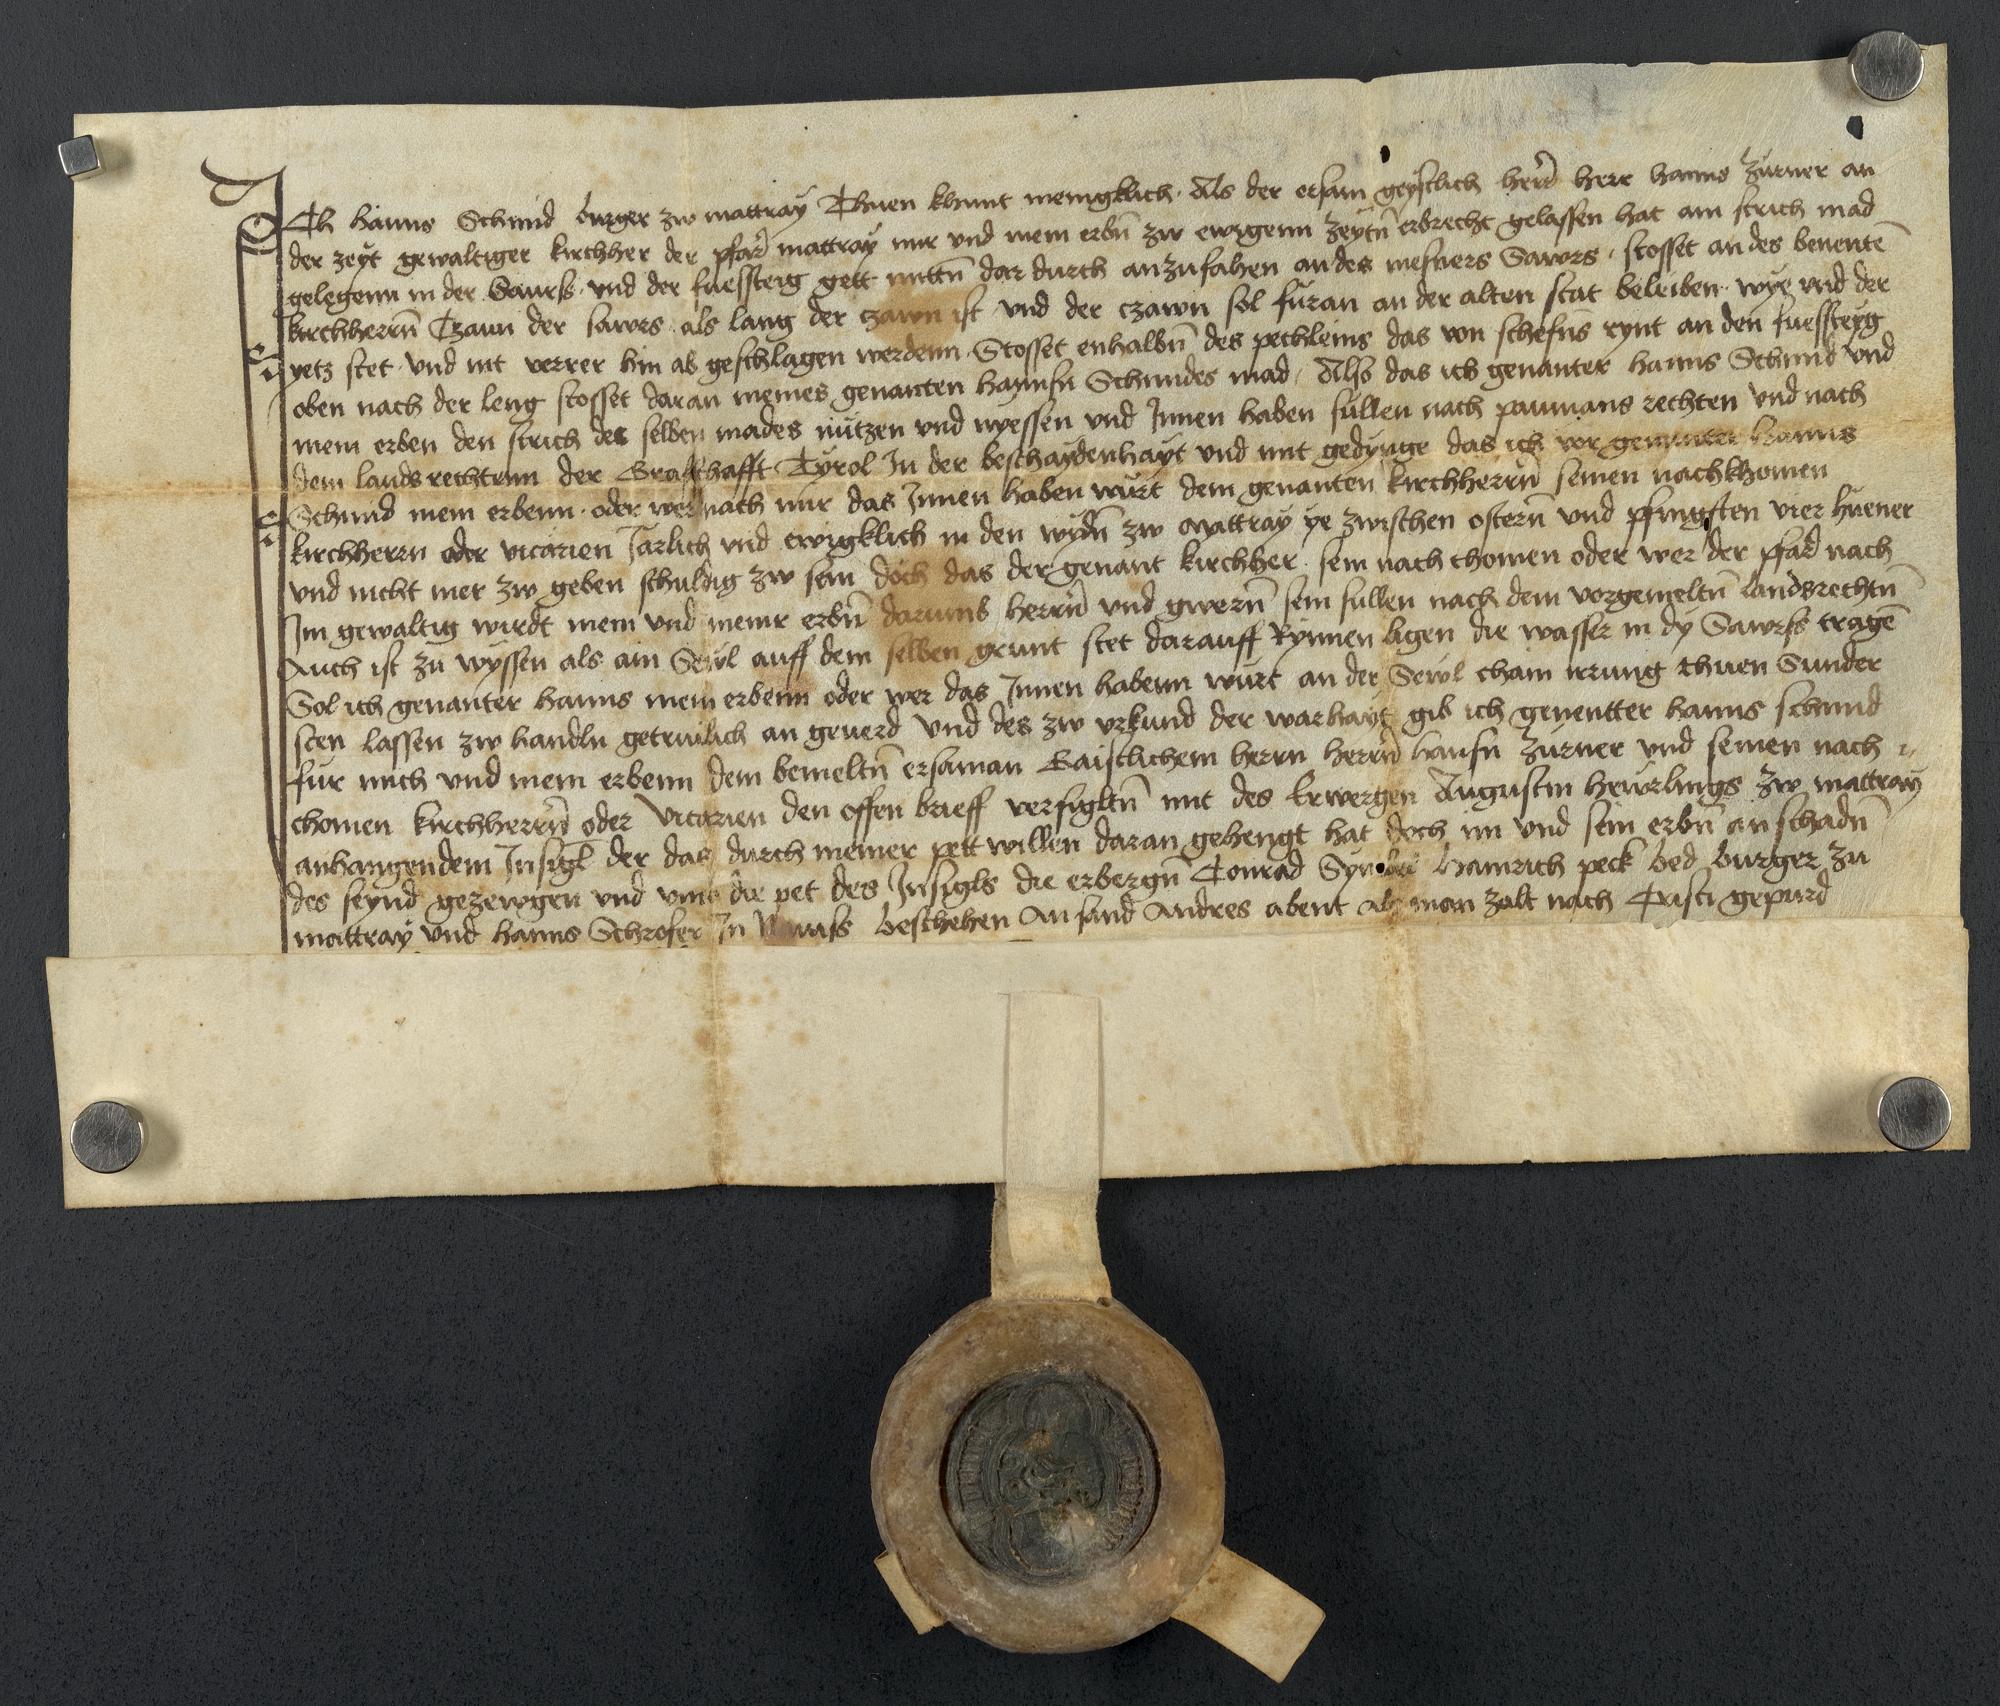 Ich Hanns Schmid burger zw mattray Thuen khunt menigklich Als der ersam geystlich herr herr hanns Zurner an
der zeyt gewaltiger kirchher der pfarr mattray mir vnd mein erbn̄ zw ewigenn zeytn̄ erbrecht gelassen hat ain strich mad
gelegenn in der Sawrss vnd der fuessteig gett mittn̄ dar durch anzufahen an des mesners Sawrs stosset an des benentē
kirchherrn̄ Czaun der sawrs als lang der czawn ist vnd der czawn sol furan an der alten stat beleiben wye vnd der
yetz stet vnd nit verrer hin ab geschlagen werdenn Stosset enhalbn̄ des pechleins das von schefns rynt an den fuessteyg
oben nach der leng stosset daran meines genanten hannsn Schmides mad Also das ich genanter hanns Schmid vnd
mein erben den strich des selben mades nutzen vnd nyessen vnd Innen haben sullen nach paumans rechten vnd nach
dem lands rechtenn der Graffschafft Tyrol In der beschaydenhayt vnd mit gedynge das ich vor genanter hanns
Schmid mein erbenn oder wer nach mir das Innen haben wurt dem genanten kirchherrn̄ seinen nachkhomen
kirchherrn oder vicarien Jarlich vnd ewigklich in den wydn̄ zw Mattray ye zwischen ostern̄ vnd pfingsten vier huener
vnd nicht mer zw geben schuldig zw sein doch das der genant kirchher sein nach chomen oder wer der pfarr nach
Im gewaltig wirdt mein vnd meinr erbn̄ darumb herrn̄ vnd gwern̄ sein sullen nach dem vorgemeltn̄ landsrechtn̄
Auch ist zu wyssen als ain Sewl auff dem selben grunt stet darauff Rynnen ligen die wasser in dy Sawrss tragē
Sol ich genanter hanns mein erbenn oder wer das Innen habenn wurt an der Sewl chain irrung thuen Sunder
sten lassen zw handln getruilich an geuerd Vnd des zw vrkund der warhayt gib ich genentter hanns schmid
fur mich vnd mein erbenn dem bemeltn̄ ersaman Gaistlichem herrn herrn̄ hansn Zurner vnd seinen nach
chomen kirchherrn̄ oder Vicarien den offen brieff versigltn̄ mit des Erwergen Augustin heurlings zw mattray
anhangendem Insigl der das durch meiner pett willen daran gehengt hat doch im vnd sein erbn̄ an schadn̄
des seynd gezewgen vnd vmb die pet des Insigls die erbergn̄ Conrad hainrich peck bed burger zu
mattray vnd hanns Schrofer In beschehen An sand Andres abent als man zalt nach Cristi gepurd